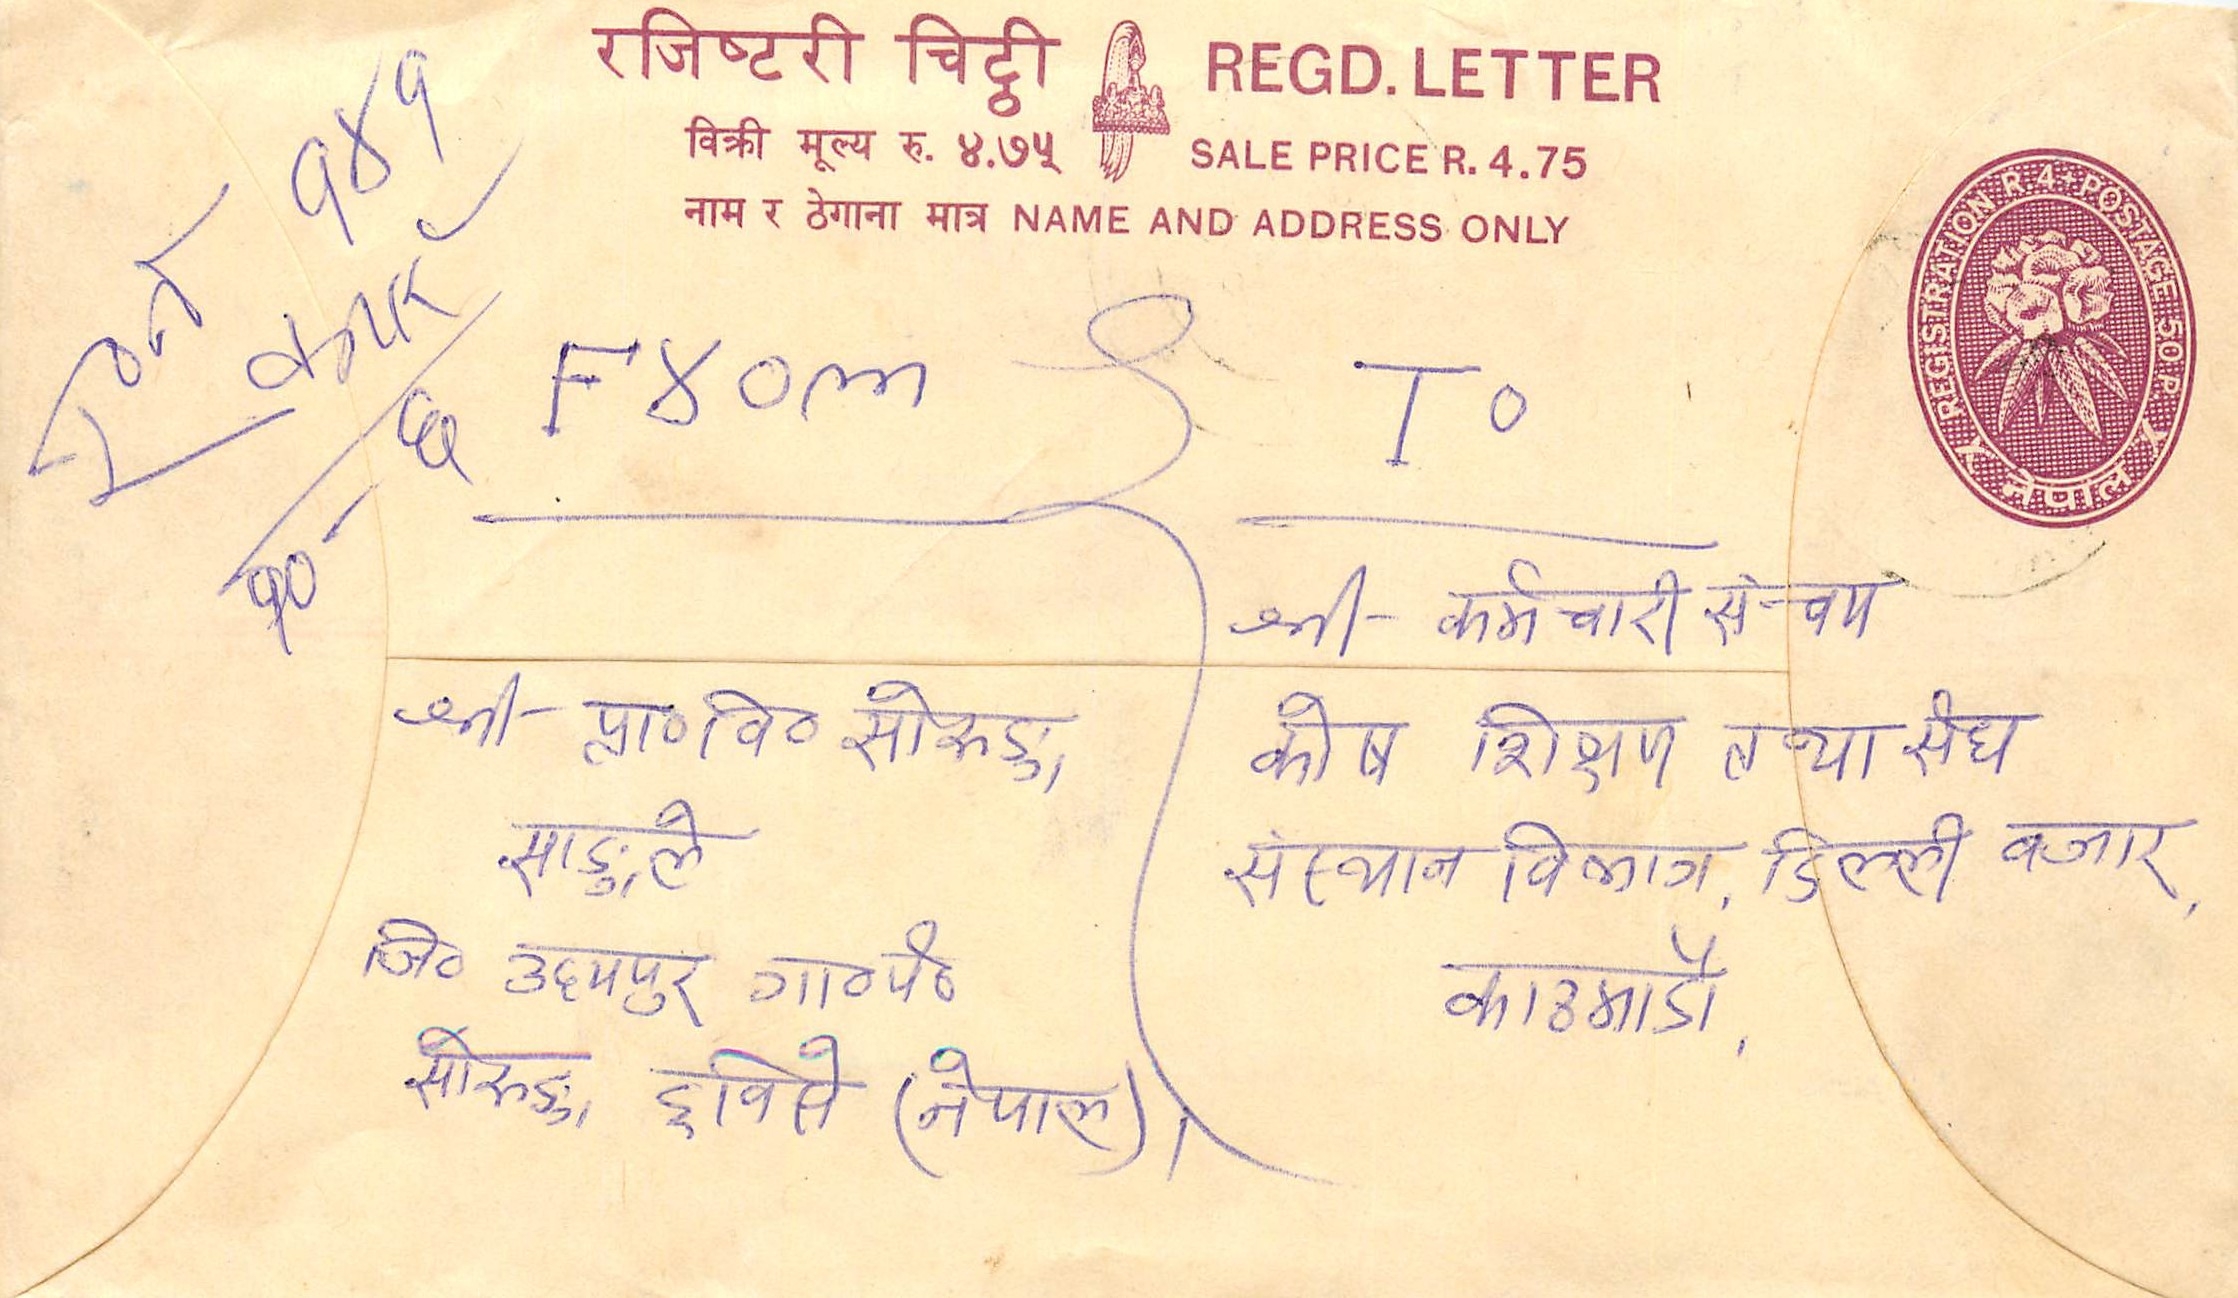 रजिष्टरी चिट्ठी REGD. LETTER
विक्री मूल्य रु. ४.७५ SALE PRICE R. 4.75
नाम र ठेगाना मात्र NAME AND ADDRESS ONLY
REGISTRATION R. 4 + POSTAGE 50 P.
नेपाल
१४१
From
To
श्री- कर्मचारी संचय
कोष शिक्षण तथा संघ
संस्थान विभाग, डिल्ली बजार,
काठमाडौं,
श्री- प्रा०वि० सोरुङ्ग,
साङ्गुले
जि० उदयपुर गा०पं०
सोरुङ्ग, (नेपाल)।
१०-